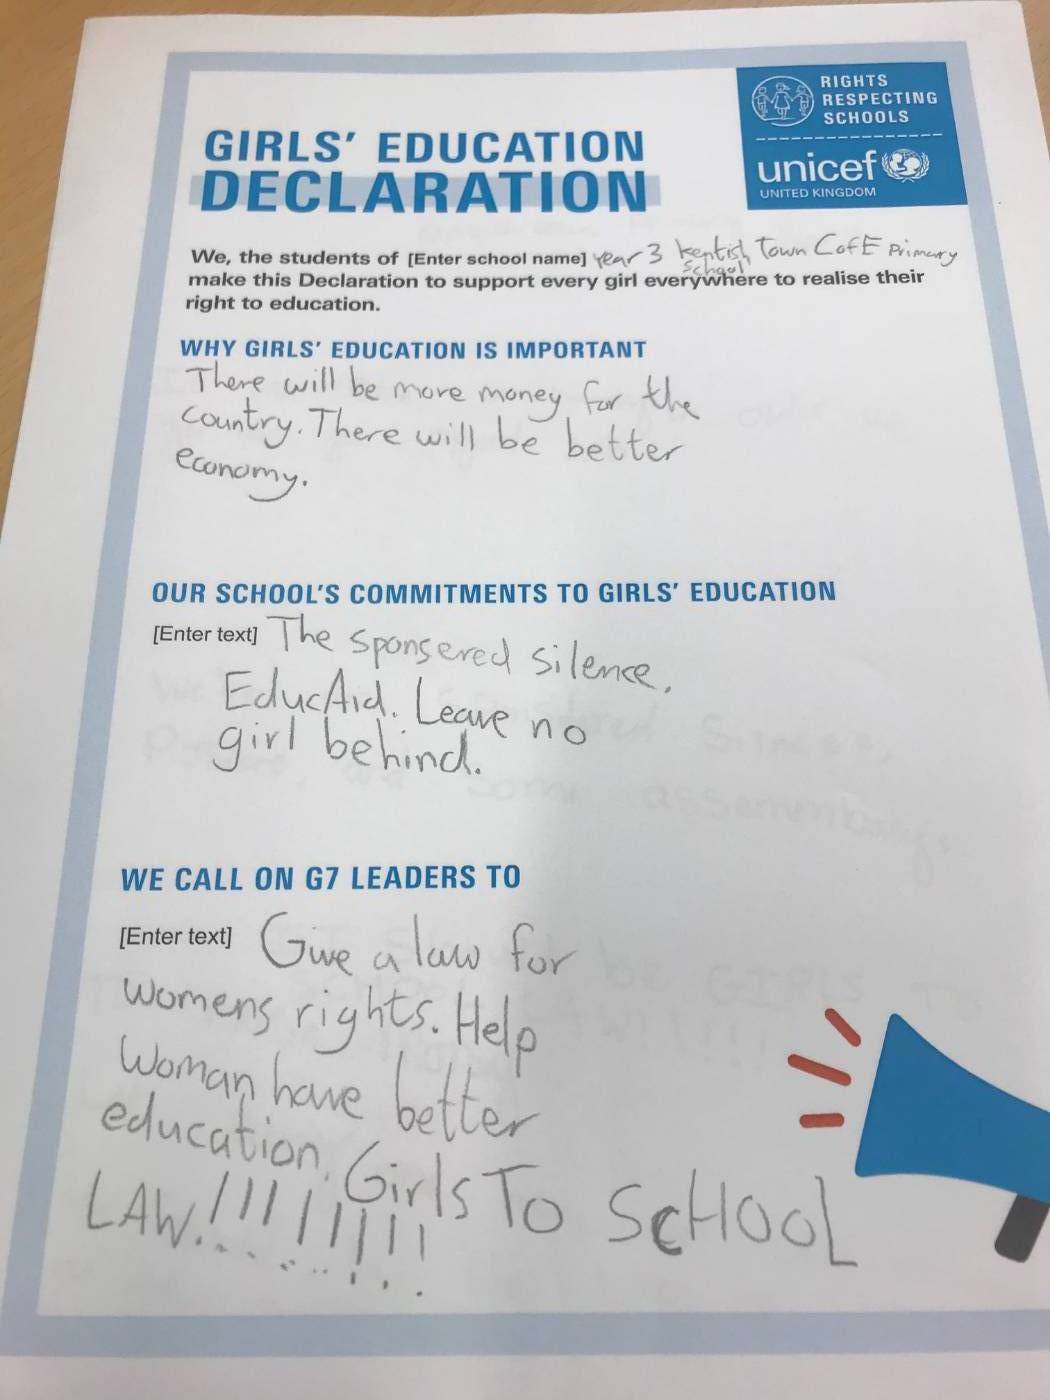 RIGHTS
RESPECTING
SCHOOLS
unicef
UNITED KINGDOM
GIRLS' EDUCATION
DECLARATION
We, the students of [Enter school name] Year 3 Kentish Town CofE Primary
School
make this Declaration to support every girl everywhere to realise their
right to education.
WHY GIRLS' EDUCATION IS IMPORTANT
There will be more money for the
country. There will be better
economy.
OUR SCHOOL'S COMMITMENTS TO GIRLS' EDUCATION
[Enter text] The sponsered silence,
EducAid. Leave no
girl behind.
WE CALL ON G7 LEADERS TO
[Enter text] Give a law for
womens rights. Help
Woman have better
education. Girls To ScHOOL
LAW!!!!!!!!!